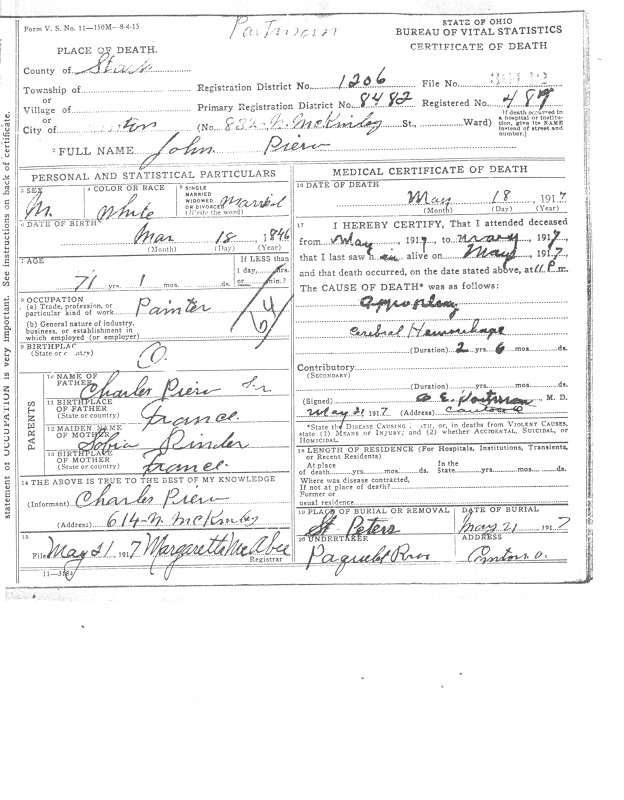 Form V. S. No. 11—150M—8-4-15
STATE OF OHIO
BUREAU OF VITAL STATISTICS
CERTIFICATE OF DEATH
PLACE OF DEATH.
County of Stark
Township of
or
Village of
or
City of
Registration District No. 1206 File No.
Primary Registration District No. 8482 Registered No. 487
(No. 832 N. McKinley St., Ward)
If death occurred in a hospital or institution, give its NAME instead of street and number.]
2 FULL NAME John Piero
PERSONAL AND STATISTICAL PARTICULARS
3 SEX M.
4 COLOR OR RACE White
5 SINGLE MARRIED WIDOWED OR DIVORCED (Write the word) Married
6 DATE OF BIRTH Mar 18, 1846
(Month) (Day) (Year)
7 AGE 71 yrs. 1 mos. ds.
If LESS than 1 day, hrs. or min.?
64
8 OCCUPATION
(a) Trade, profession, or particular kind of work Painter
(b) General nature of industry, business, or establishment in which employed (or employer)
9 BIRTHPLACE
(State or country) O.
PARENTS
10 NAME OF FATHER Charles Piero Sr
11 BIRTHPLACE OF FATHER (State or country) France.
12 MAIDEN NAME OF MOTHER
13 BIRTHPLACE OF MOTHER (State or country) France.
14 THE ABOVE IS TRUE TO THE BEST OF MY KNOWLEDGE
(Informant) Charles Piero
(Address) 614-N McKinley
15
Filed May 21, 1917 Margaretta McAbee
Registrar
11—3184
MEDICAL CERTIFICATE OF DEATH
16 DATE OF DEATH
May 18, 1917
(Month) (Day) (Year)
17 I HEREBY CERTIFY, That I attended deceased
from May, 1917, to May, 1917,
that I last saw him alive on May, 1917
and that death occurred, on the date stated above, at 11 P m.
The CAUSE OF DEATH* was as follows:
Apoplexy
Cerebral Hemorrhage
(Duration) 2 yrs. 6 mos. ds.
Contributory
(SECONDARY)
(Duration) yrs. mos. ds.
(Signed) M. D.
May 21 1917 (Address)
*State the DISEASE CAUSING DEATH, or, in deaths from VIOLENT CAUSES, state (1) MEANS OF INJURY; and (2) whether ACCIDENTAL, SUICIDAL, or HOMICIDAL.
18 LENGTH OF RESIDENCE (For Hospitals, Institutions, Transients, or Recent Residents)
At place of death yrs. mos. ds. In the State yrs. mos. ds.
Where was disease contracted, If not at place of death?
Former or usual residence
19 PLACE OF BURIAL OR REMOVAL St. Peters
DATE OF BURIAL May 21 1917
20 UNDERTAKER
ADDRESS Canton O.
statement of OCCUPATION is very important. See instructions on back of certificate.